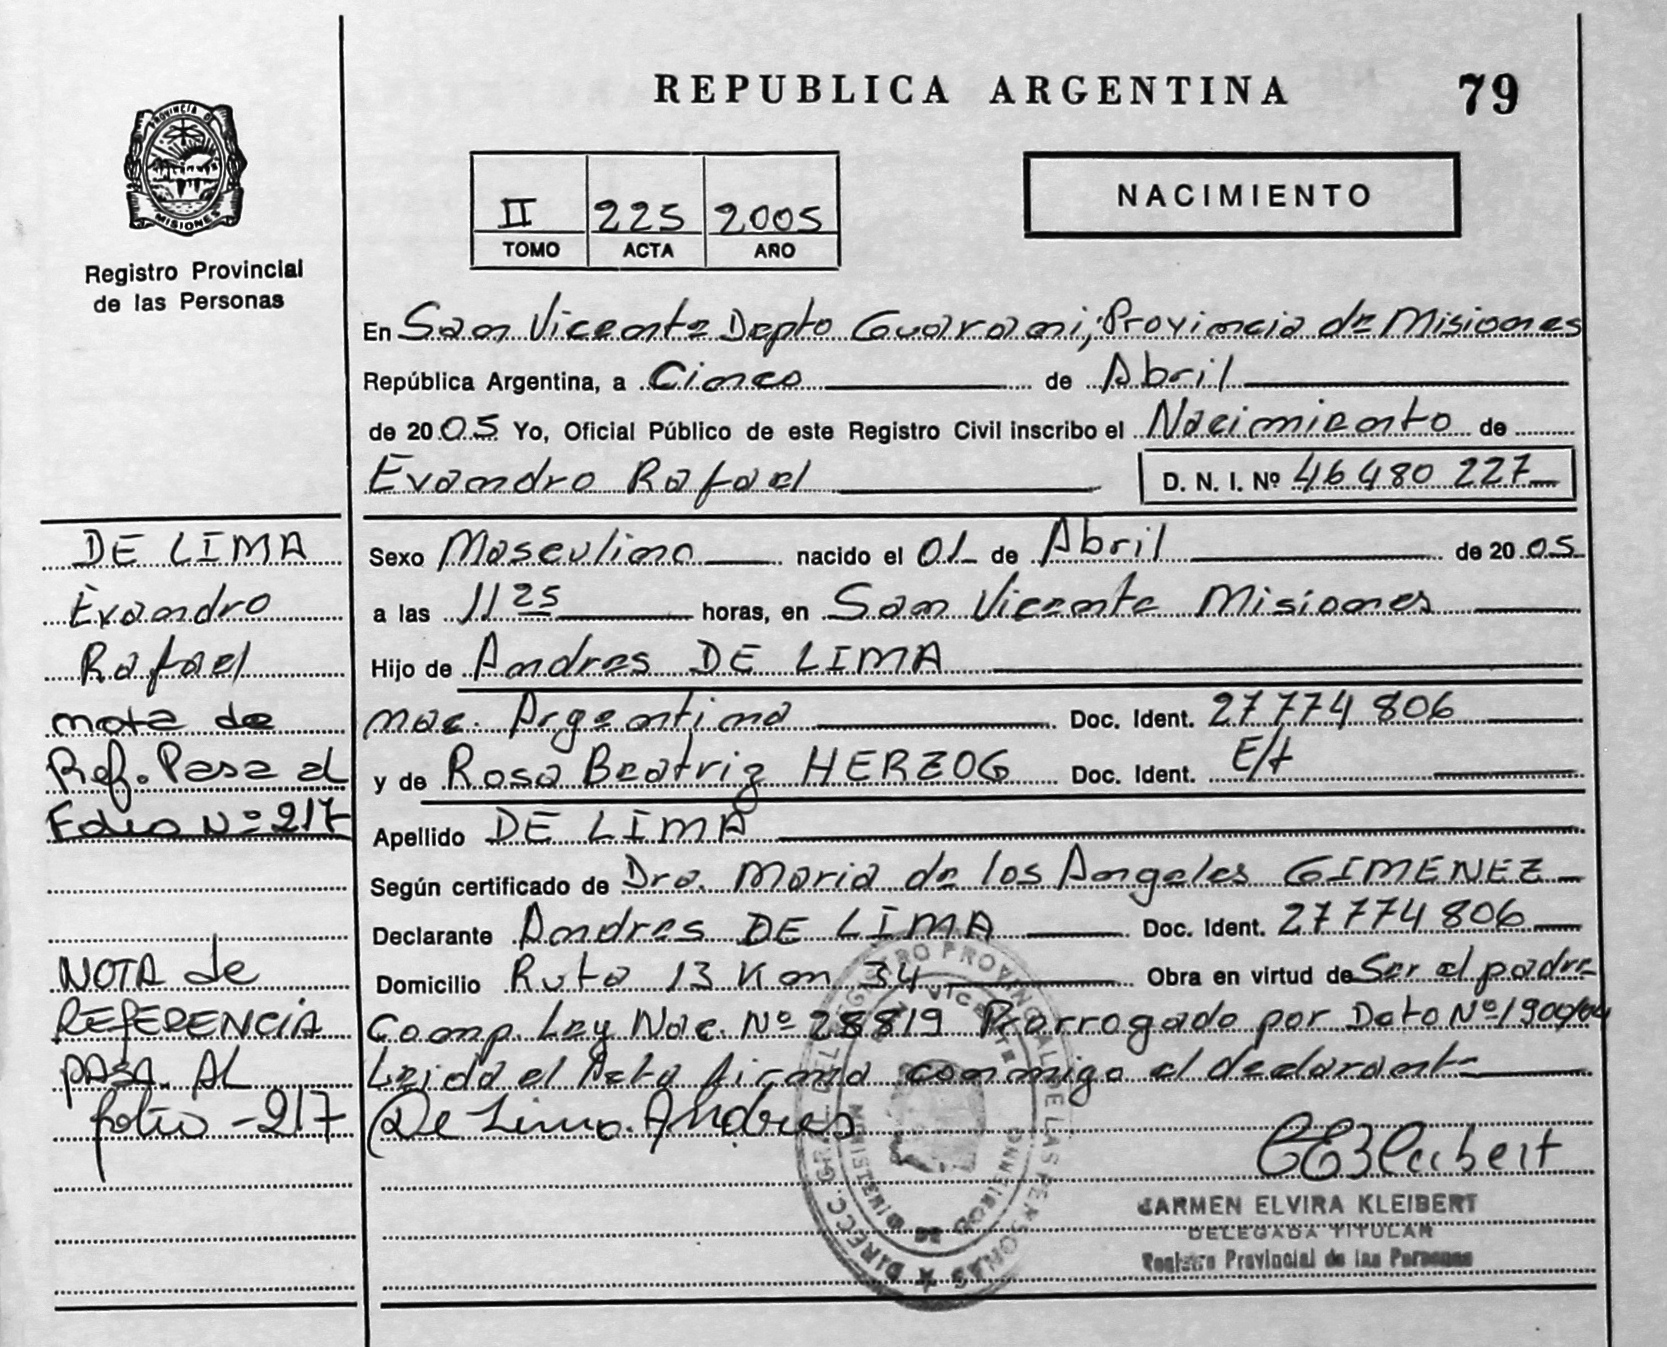 REPUBLICA ARGENTINA 79
PROVINCIA DE
MISIONES
Registro Provincial
de las Personas
II 225 2005
TOMO ACTA AÑO
NACIMIENTO
En San Vicente Depto Guarani, Provincia de Misiones
República Argentina, a Cinco de Abril
de 2005 Yo, Oficial Público de este Registro Civil inscribo el Nacimiento de
Evandro Rafael D. N. I. Nº 46 480 227
Sexo Masculino nacido el 01 de Abril de 2005
a las 11 25 horas, en San Vicente Misiones
Hijo de Andres DE LIMA
nac. Argentina Doc. Ident. 27774 806
y de Rosa Beatriz HERZOG Doc. Ident. E/t
Apellido DE LIMA
Según certificado de Dra. Maria de los Angeles GIMENEZ
Declarante Andres DE LIMA Doc. Ident. 27774 806
Domicilio Ruta 13 Km 34 Obra en virtud de Ser el padre
Comp. Ley Nac. Nº 28819 Prorrogado por Dcto Nº 1900/04
Leida el Acta firma conmigo el declarante
De Lima Andres
DE LIMA
Evandro
Rafael
nota de
Ref. Pasa al
Folio Nº 217
NOTA de
REFERENCIA
PASA. AL
folio - 217
DIRECC. GRAL. DEL REGISTRO PROVINCIAL DE LAS PERSONAS
VICENTE
MINISTERIO DE GOBIERNO
CEKleibert
CARMEN ELVIRA KLEIBERT
DELEGADA TITULAR
Registro Provincial de las Personas